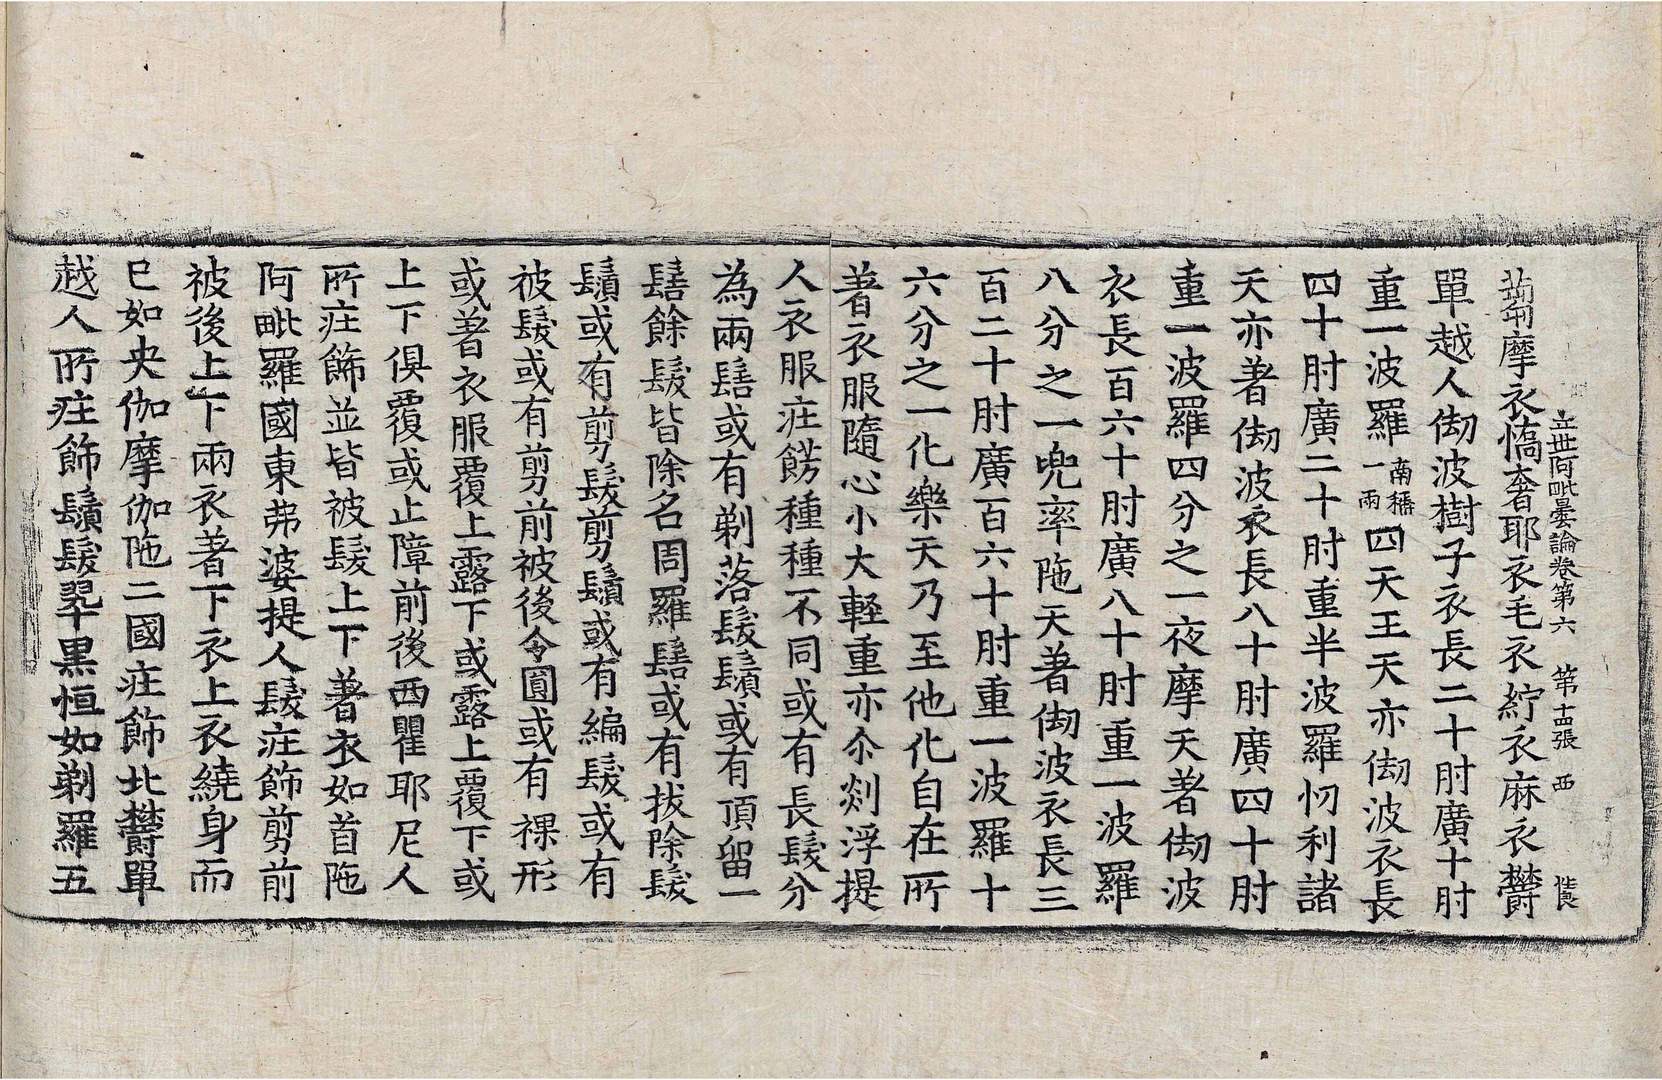 立世阿毗曇論卷第六　第十四張　西
蒭摩衣憍奢耶衣毛衣紵衣麻衣欝
單越人㓨波樹子衣長二十肘廣十肘
重一波羅南稱一兩四天王天亦㓨波衣長
四十肘廣二十肘重半波羅忉利諸
天亦著㓨波衣長八十肘廣四十肘
重一波羅四分之一夜摩天著㓨波
衣長百六十肘廣八十肘重一波羅
八分之一兜率陁天著㓨波衣長三
百二十肘廣百六十肘重一波羅十
六分之一化樂天乃至他化自在所
著衣服隨心小大輕重亦尒剡浮提
人衣服庄餝種種不同或有長髮分
為兩髻或有剃落髮鬚或有頂留一
髻餘髮皆除名周羅髻或有拔除髮
鬚或有剪髮剪鬚或有編髮或有
被髮或有剪前被後令圓或有裸形
或著衣服覆上露下或露上覆下或
上下俱覆或止障前後西瞿耶尼人
所庄飾並皆被髮上下著衣如首陁
阿毗羅國東弗婆提人髮庄飾剪前
被後上下兩衣著下衣上衣繞身而
已如央伽摩伽陁二國庄飾北欝單
越人所庄飾鬚髮翠黑恒如剃羅五